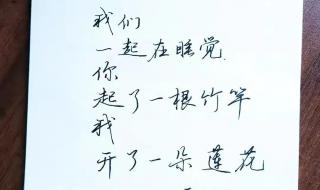 我们
一起在睡觉
你
起了一根竹竿
我
开了一朵莲花